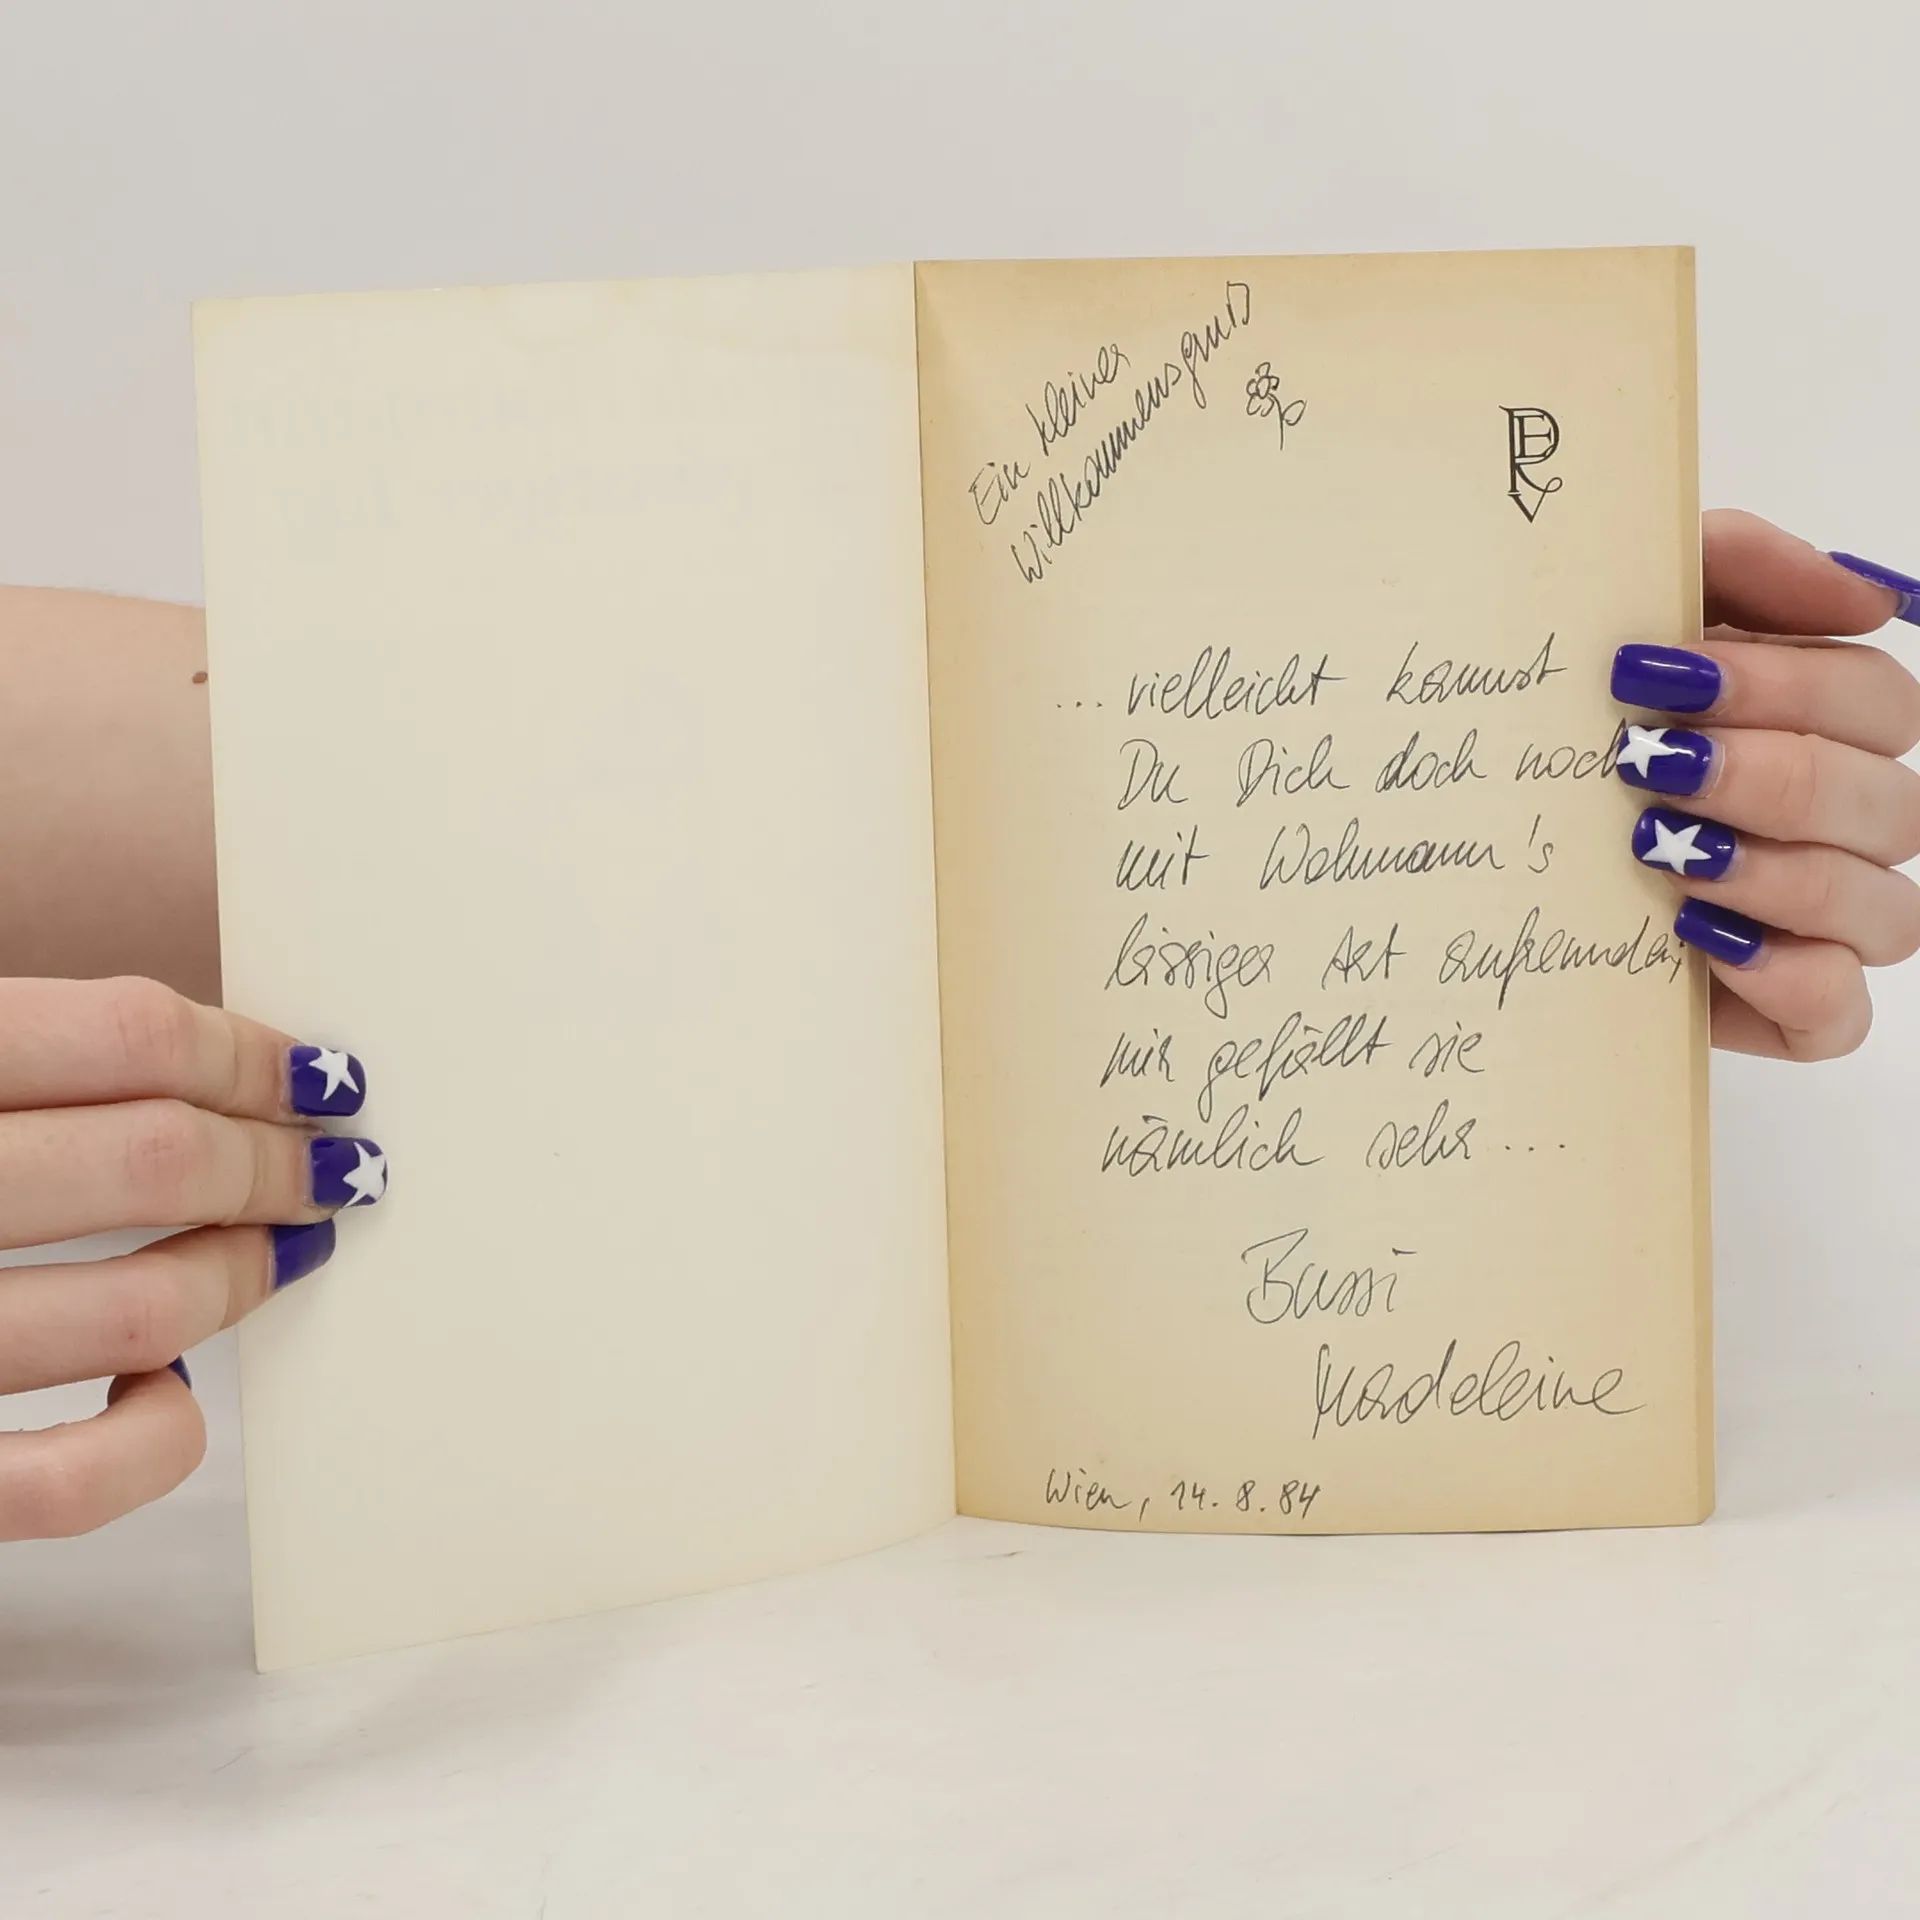 Ein kleiner
Willkommensgruß
... vielleicht kannst
Du Dich doch noch
mit Wohmann's
bissiger Art anfreunden,
mir gefällt sie
nämlich sehr ...
Bussi
Madeleine
Wien, 14. 8. 84